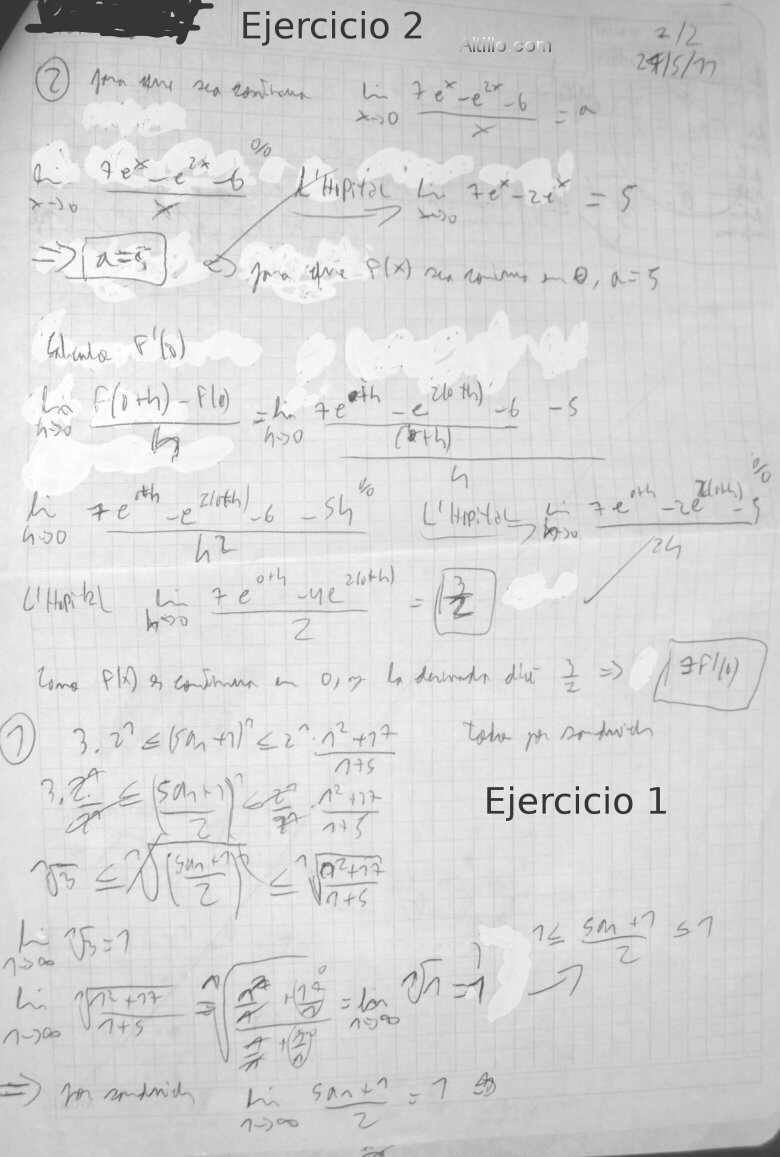 Ejercicio 2
Altillo.com
2/2
24/5/11
② para que sea continua lim x→0 (7e^x - e^2x - 6)/x = a
lim x→0 (7e^x - e^2x - 6)/x 0/0 L'Hopital lim x→0 7e^x - 2e^x = 5
⇒ a=5 ⇒ para que f(x) sea continua en 0, a=5
Calculo F'(0)
lim h→0 (F(0+h) - F(0))/h = lim h→0 ((7e^0+h - e^2(0+h) - 6)/(0+h) - 5)/h
lim h→0 (7e^0+h - e^2(0+h) - 6 - 5h)/h^2 0/0 L'Hopital lim h→0 (7e^0+h - 2e^2(0+h) - 5)/2h 0/0
L'Hopital lim h→0 (7e^0+h - 4e^2(0+h))/2 = 3/2
Como f(x) es continua en 0, y la derivada dió 3/2 ⇒ ∃ f'(0)
① 3.2^n ≤ (5an+1)^n ≤ 2^n . (n^2+17)/(n+5) por sandwich
3.2^n/2^n ≤ ((5an+1)/2)^n ≤ 2^n/2^n . (n^2+17)/(n+5)
n√3 ≤ n√((5an+1)/2)^n ≤ n√((n^2+17)/(n+5))
lim n→∞ n√3 = 1
1 ≤ (5an+1)/2 ≤ 1
lim n→∞ n√((n^2+17)/(n+5)) = lim n→∞ n√n = 1
⇒ por sandwich lim n→∞ (5an+1)/2 = 1 ⇒
Ejercicio 1